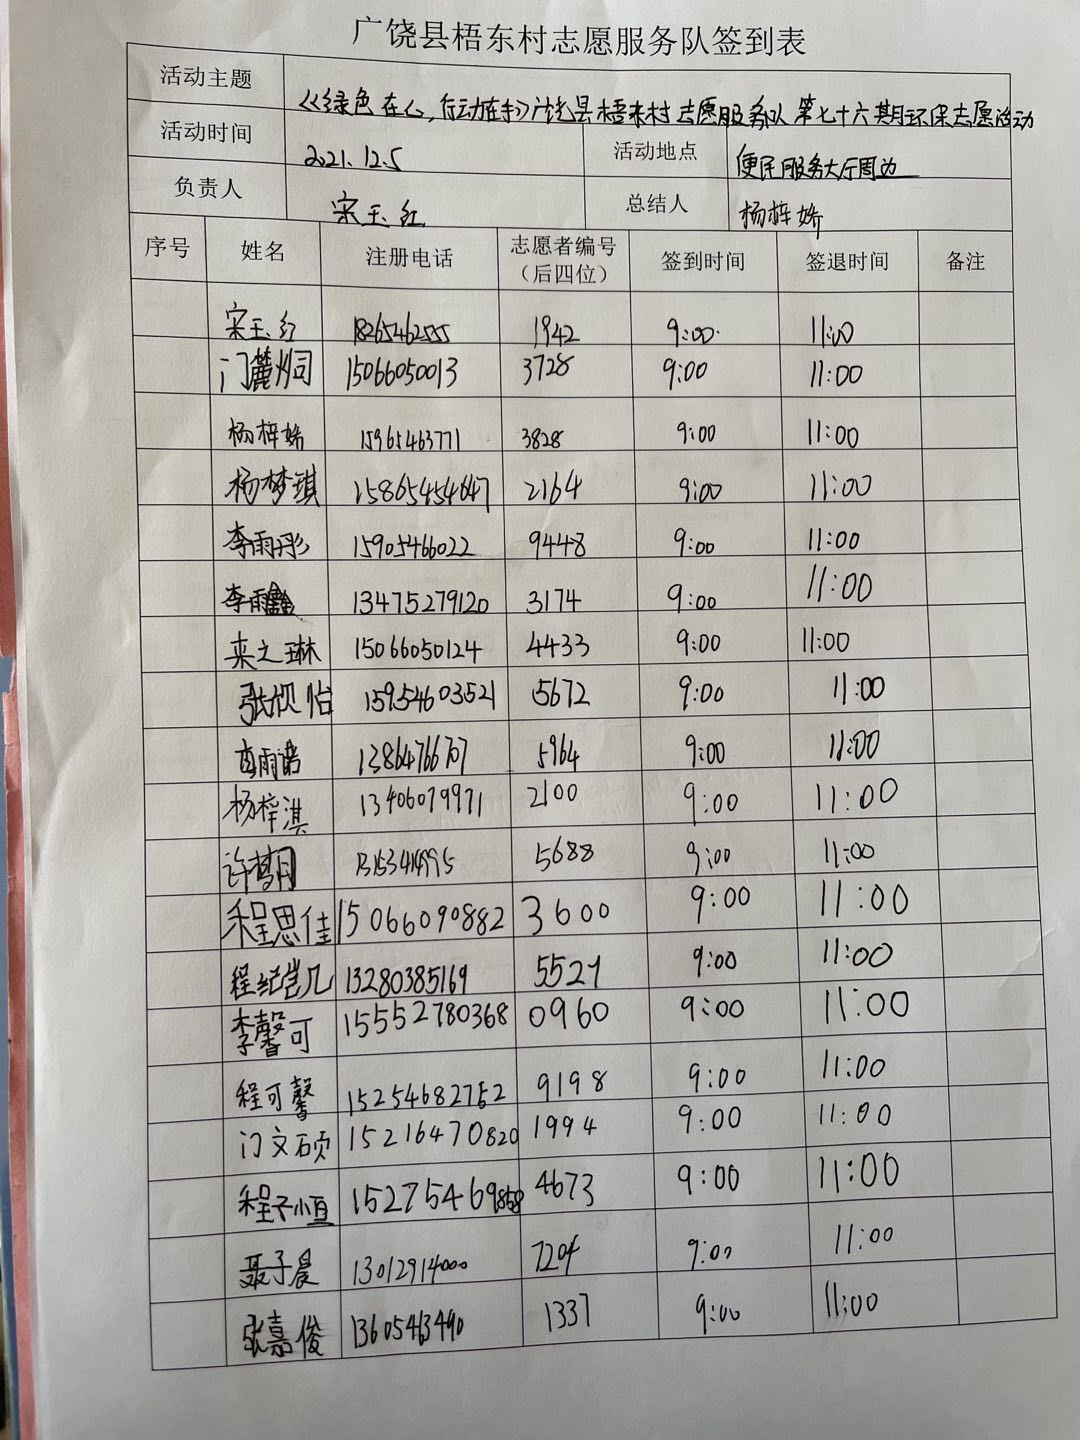 广饶县梧东村志愿服务队签到表
活动主题 《绿色在心,行动在手》广饶县梧东村志愿服务队第七十六期环保志愿活动
活动时间 2021.12.5 活动地点 便民服务大厅周边
负责人 宋玉红 总结人 杨梓娇
序号 姓名 注册电话 志愿者编号(后四位) 签到时间 签退时间 备注
宋玉红 18265462555 1942 9:00 11:00
门麓 15066050013 3728 9:00 11:00
杨梓娇 15965463771 3828 9:00 11:00
杨梦琪 15865454647 2164 9:00 11:00
李雨彤 15905466022 9448 9:00 11:00
李雨鑫 13475279120 3174 9:00 11:00
来之琳 15066050124 4433 9:00 11:00
张欣怡 15954603521 5672 9:00 11:00
雨诺 13864766707 5964 9:00 11:00
杨梓淇 13406079971 2100 9:00 11:00
许 5688 9:00 11:00
程思佳 15066090882 3600 9:00 11:00
程纪 13280385169 5521 9:00 11:00
李馨可 15552780368 0960 9:00 11:00
程可馨 15254682752 9198 9:00 11:00
门文硕 15216470820 1994 9:00 11:00
程子恒 15275469858 4673 9:00 11:00
聂子晨 13012914000 7204 9:00 11:00
张嘉俊 13605463490 1337 9:00 11:00